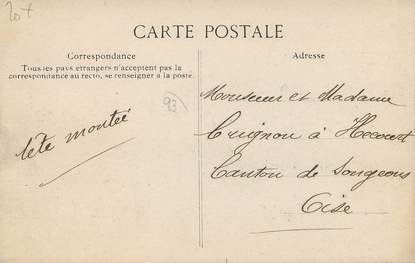 20+
CARTE POSTALE
Correspondance
Adresse
Tous les pays étrangers n'acceptent pas la
correspondance au recto, se renseigner à la poste.
93
tête montée
Monsieur et Madame
Cuignon à Hécourt
Canton de Songeons
Oise